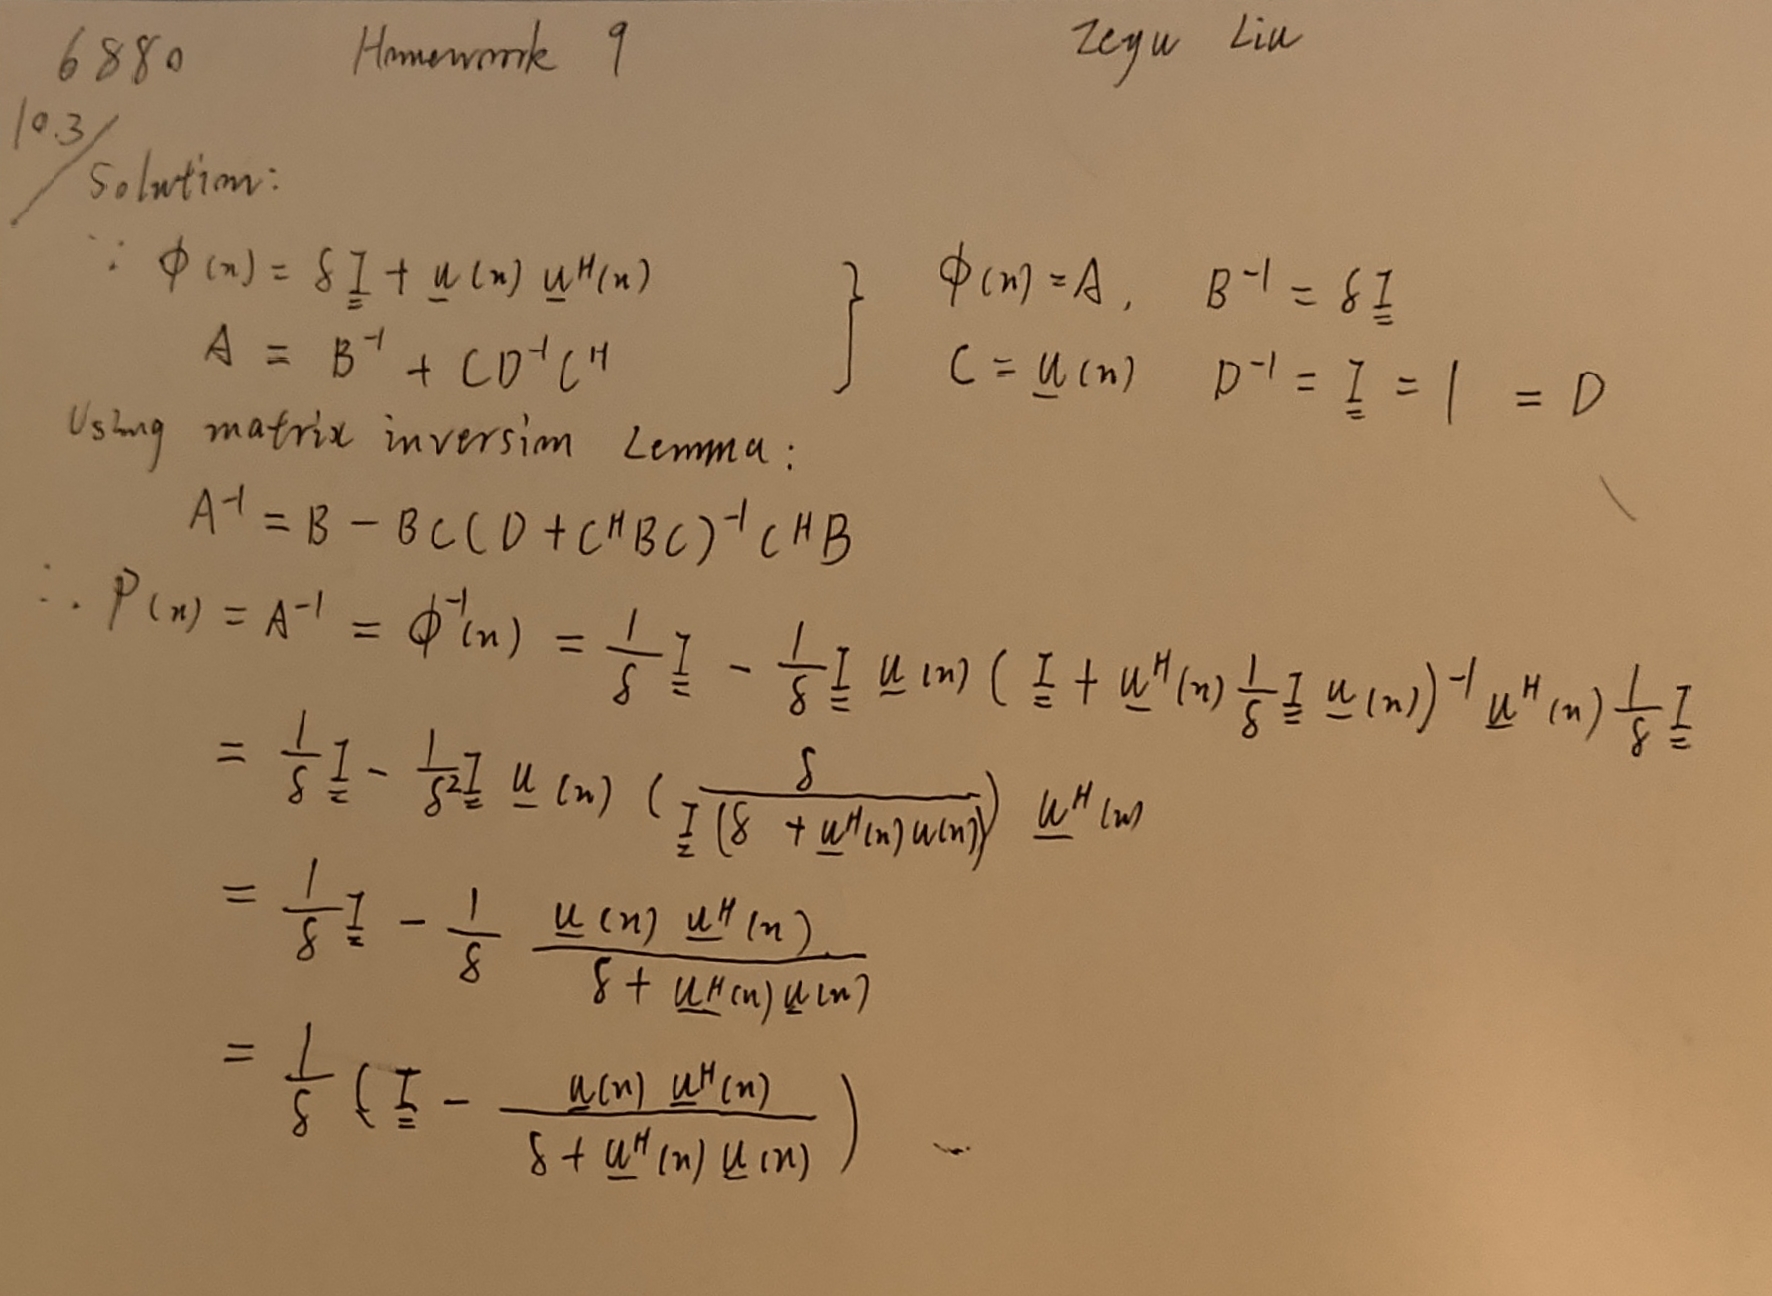 6880 Homework 9 Zeyu Liu
10.3/
Solution:
∵ ϕ(n) = δI + u(n) u^H(n) } ϕ(n) = A, B^-1 = δI
A = B^-1 + CD^-1C^H C = u(n) D^-1 = I = 1 = D
Using matrix inversion Lemma:
A^-1 = B - BC(D + C^HBC)^-1 C^HB
∴ P(n) = A^-1 = ϕ^-1(n) = 1/δ I - 1/δ I u(n) (I + u^H(n) 1/δ I u(n))^-1 u^H(n) 1/δ I
= 1/δ I - 1/δ^2 I u(n) (δ / I(δ + u^H(n)u(n))) u^H(n)
= 1/δ I - 1/δ u(n) u^H(n) / δ + u^H(n) u(n)
= 1/δ (I - u(n) u^H(n) / δ + u^H(n) u(n))